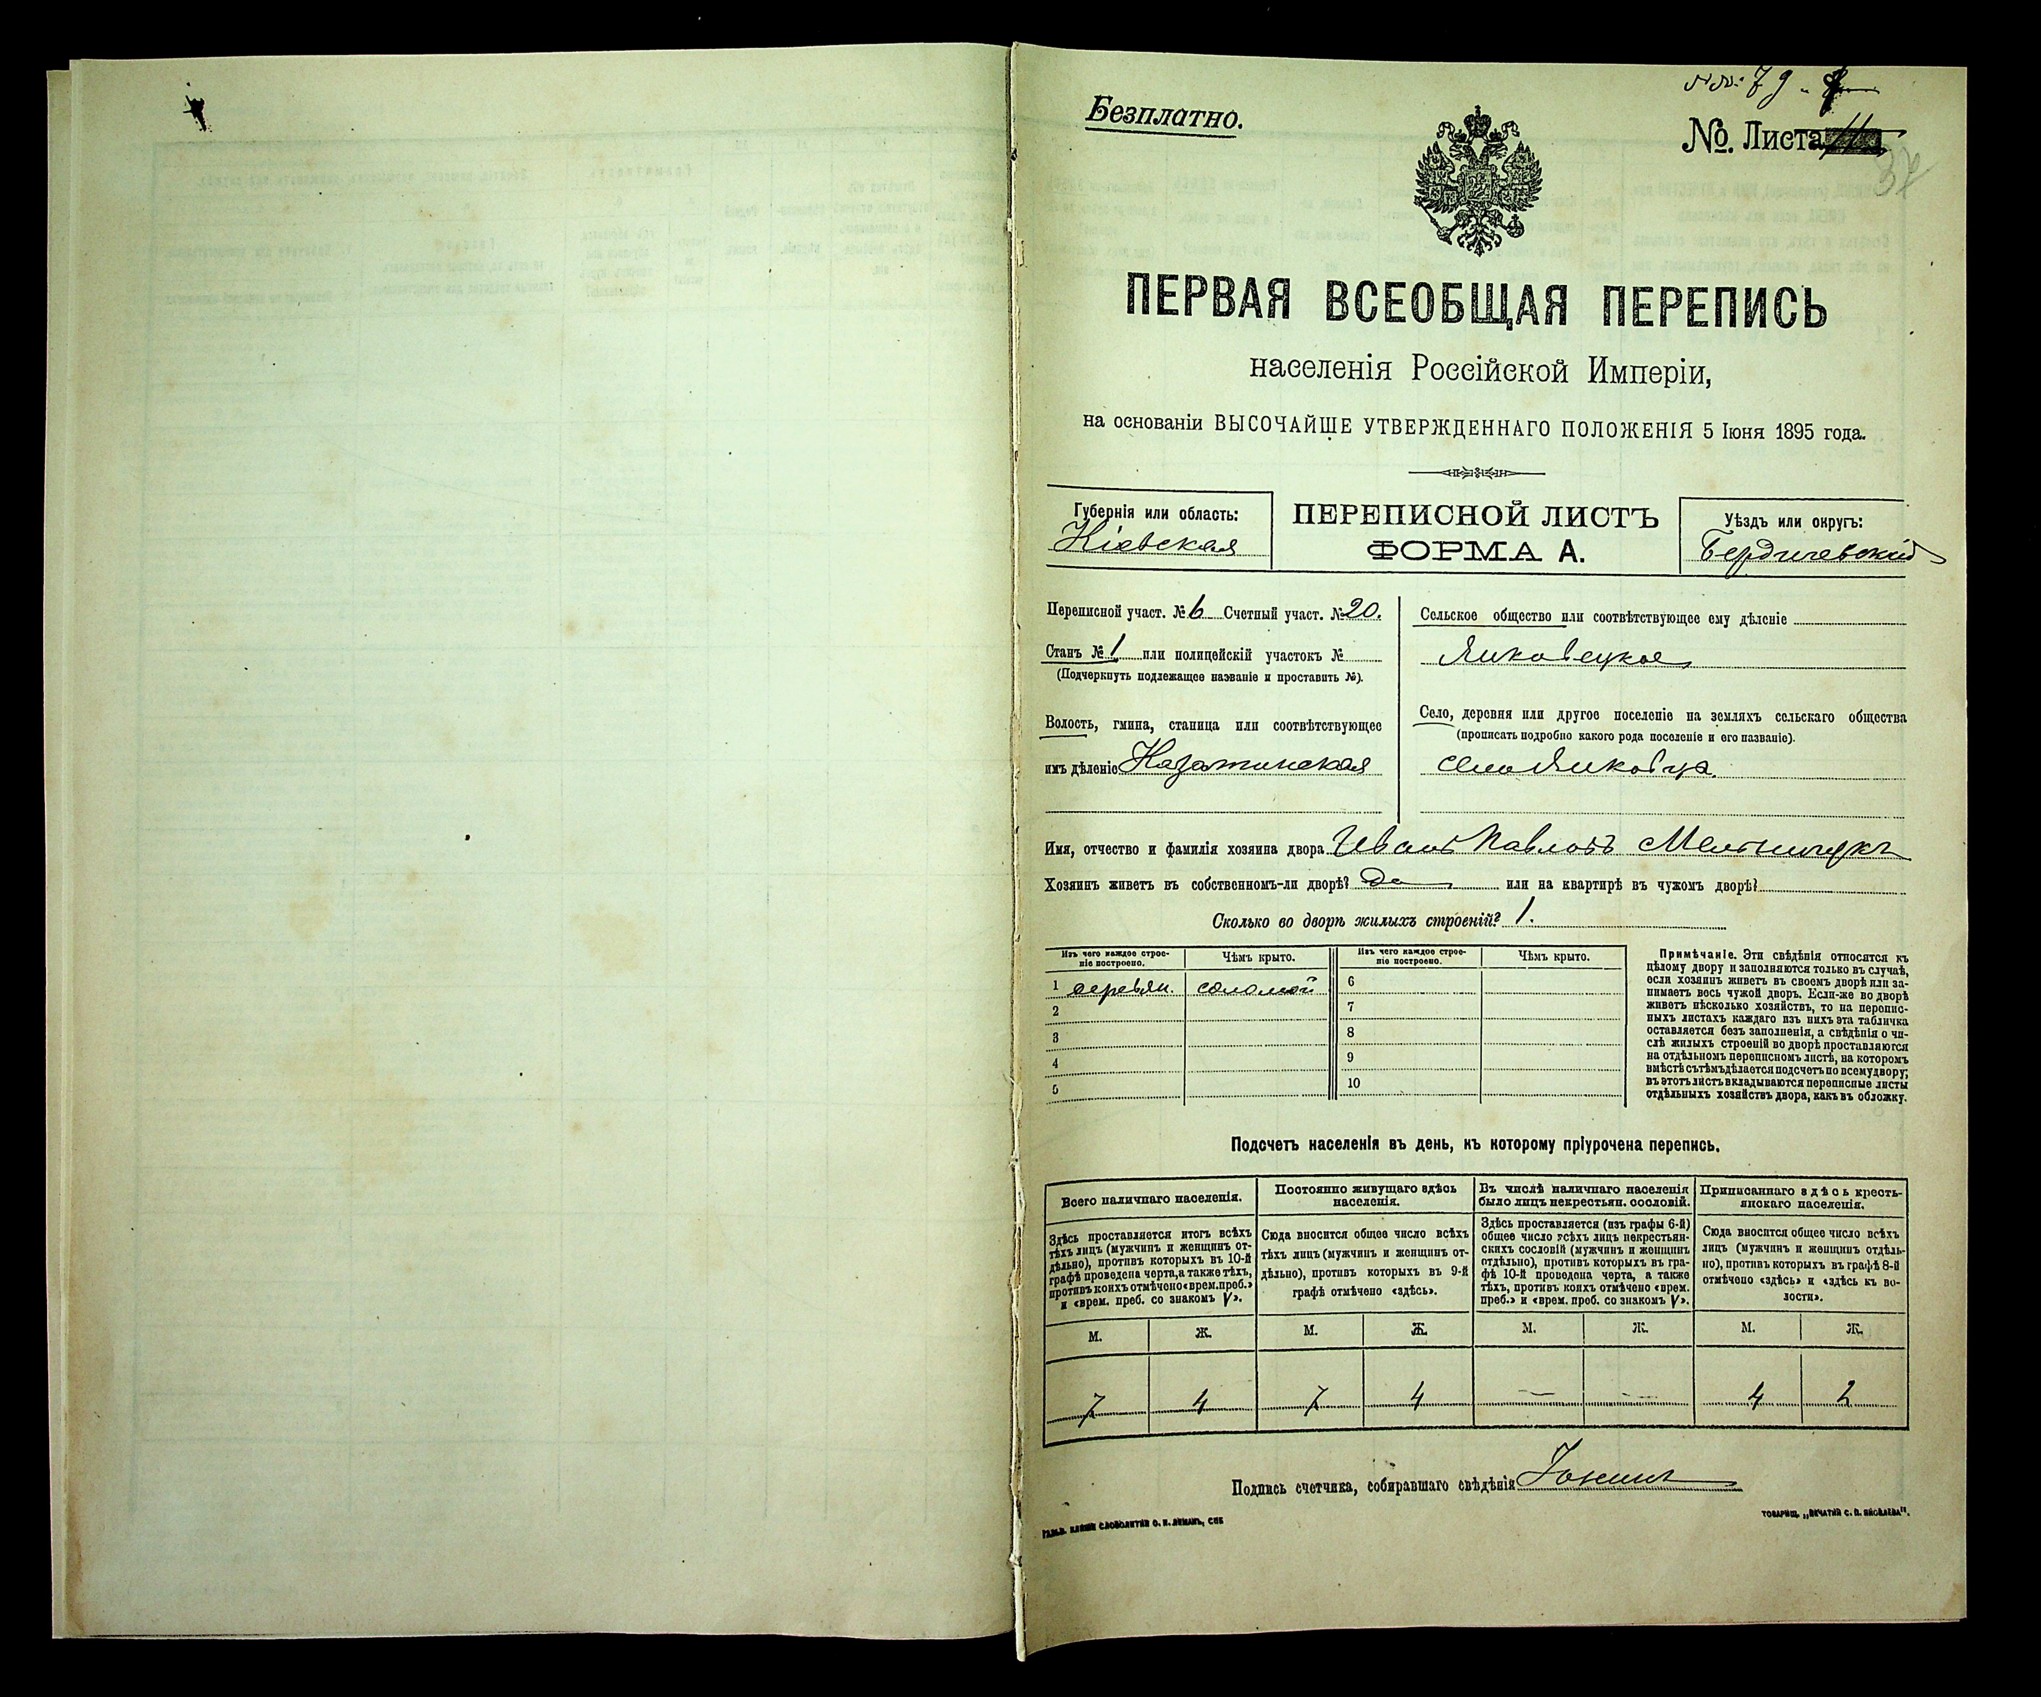 Безплатно.
№№ 79
№. Листа 11
37
ПЕРВАЯ ВСЕОБЩАЯ ПЕРЕПИСЬ
населенія Россійской Имперіи,
на основаніи ВЫСОЧАЙШЕ УТВЕРЖДЕННАГО ПОЛОЖЕНІЯ 5 Іюня 1895 года.
Губернія или область:
Кіевская
ПЕРЕПИСНОЙ ЛИСТЪ
ФОРМА А.
Уѣздъ или округъ:
Бердичевскій
Переписной участ. № 6 Счетный участ. № 20.
Станъ № 1 или полицейскій участокъ №
(Подчеркнуть подлежащее названіе и проставить №).
Волость, гмина, станица или соотвѣтствующее
имъ дѣленіе Казатинская
Сельское общество или соотвѣтствующее ему дѣленіе
Яиковецкое
Село, деревня или другое поселеніе на земляхъ сельскаго общества
(прописать подробно какого рода поселеніе и его названіе).
село
Имя, отчество и фамилія хозяина двора Иванъ Павловъ Мельничукъ
Хозяинъ живетъ въ собственномъ-ли дворѣ? Да или на квартирѣ въ чужомъ дворѣ?
Сколько во дворѣ жилыхъ строеній? 1.
Изъ чего каждое строе-
ніе построено.
Чѣмъ крыто.
Изъ чего каждое строе-
ніе построено.
Чѣмъ крыто.
1 деревян. соломой
2
3
4
5
6
7
8
9
10
Примѣчаніе. Эти свѣдѣнія относятся къ
цѣлому двору и заполняются только въ случаѣ,
если хозяинъ живетъ въ своемъ дворѣ или за-
нимаетъ весь чужой дворъ. Если-же во дворѣ
живетъ нѣсколько хозяйствъ, то на перепис-
ныхъ листахъ каждаго изъ нихъ эта табличка
оставляется безъ заполненія, а свѣдѣнія о чи-
слѣ жилыхъ строеній во дворѣ проставляются
на отдѣльномъ переписномъ листѣ, на которомъ
вмѣстѣ съ тѣмъ дѣлается подсчетъ по всему двору;
въ этотъ листъ вкладываются переписные листы
отдѣльныхъ хозяйствъ двора, какъ въ обложку.
Подсчетъ населенія въ день, къ которому пріурочена перепись.
Всего наличнаго населенія.
Здѣсь проставляется итогъ всѣхъ
тѣхъ лицъ (мужчинъ и женщинъ от-
дѣльно), противъ которыхъ въ 10-й
графѣ проведена черта, а также тѣхъ,
противъ коихъ отмѣчено «врем. преб.»
и «врем. преб. со знакомъ V».
Постоянно живущаго здѣсь
населенія.
Сюда вносится общее число всѣхъ
тѣхъ лицъ (мужчинъ и женщинъ от-
дѣльно), противъ которыхъ въ 9-й
графѣ отмѣчено «здѣсь».
Въ числѣ наличнаго населенія
было лицъ некрестьян. сословій.
Здѣсь проставляется (изъ графы 6-й)
общее число всѣхъ лицъ некрестьян-
скихъ сословій (мужчинъ и женщинъ
отдѣльно), противъ которыхъ въ гра-
фѣ 10-й проведена черта, а также
тѣхъ, противъ коихъ отмѣчено «врем.
преб.» и «врем. преб. со знакомъ V».
Приписаннаго здѣсь кресть-
янскаго населенія.
Сюда вносится общее число всѣхъ
лицъ (мужчинъ и женщинъ отдѣль-
но), противъ которыхъ въ графѣ 8-й
отмѣчено «здѣсь» и «здѣсь къ во-
лости».
М. Ж. М. Ж. М. Ж. М. Ж.
7 4 7 4 — — 4 2
Подпись счетчика, собиравшаго свѣдѣнія
ТОВАРИЩ. „ПЕЧАТНЯ С. П. ЯКОВЛЕВА".